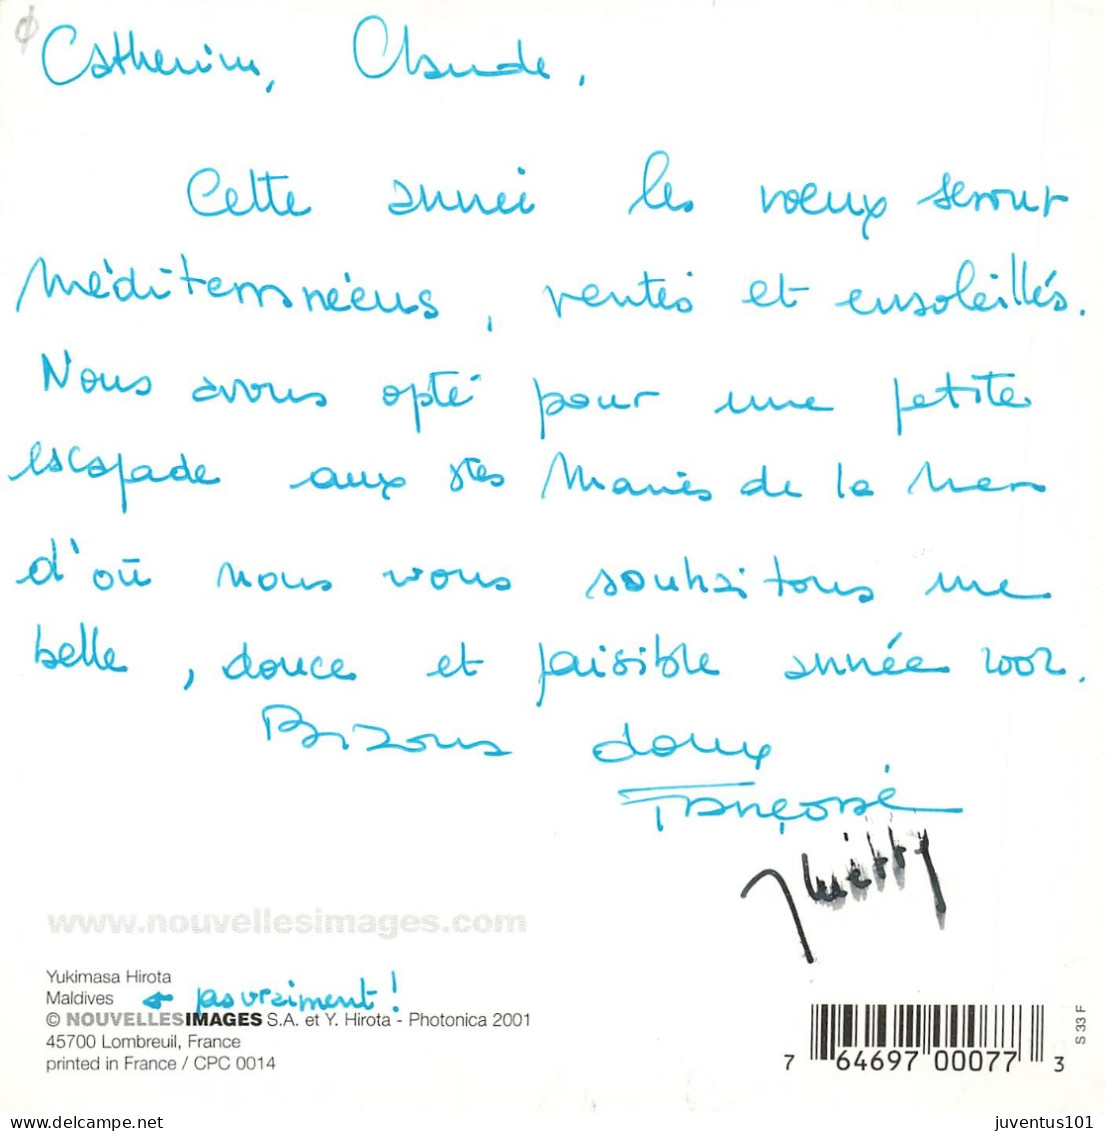 Catherine, Claude,
Cette année les vœux seront
méditerranéens, ventés et ensoleillés.
Nous avons opté pour une petite
escapade aux Stes Maries de la Mer
d'où nous vous souhaitons une
belle, douce et paisible année 2002.
Bizous doux
Françoise
Thierry
www.nouvellesimages.com
Yukimasa Hirota
Maldives ← pas vraiment !
© NOUVELLES IMAGES S.A. et Y. Hirota - Photonica 2001
45700 Lombreuil, France
printed in France / CPC 0014
7 64697 00077 3
S 33 F
delcampe.net
juventus101